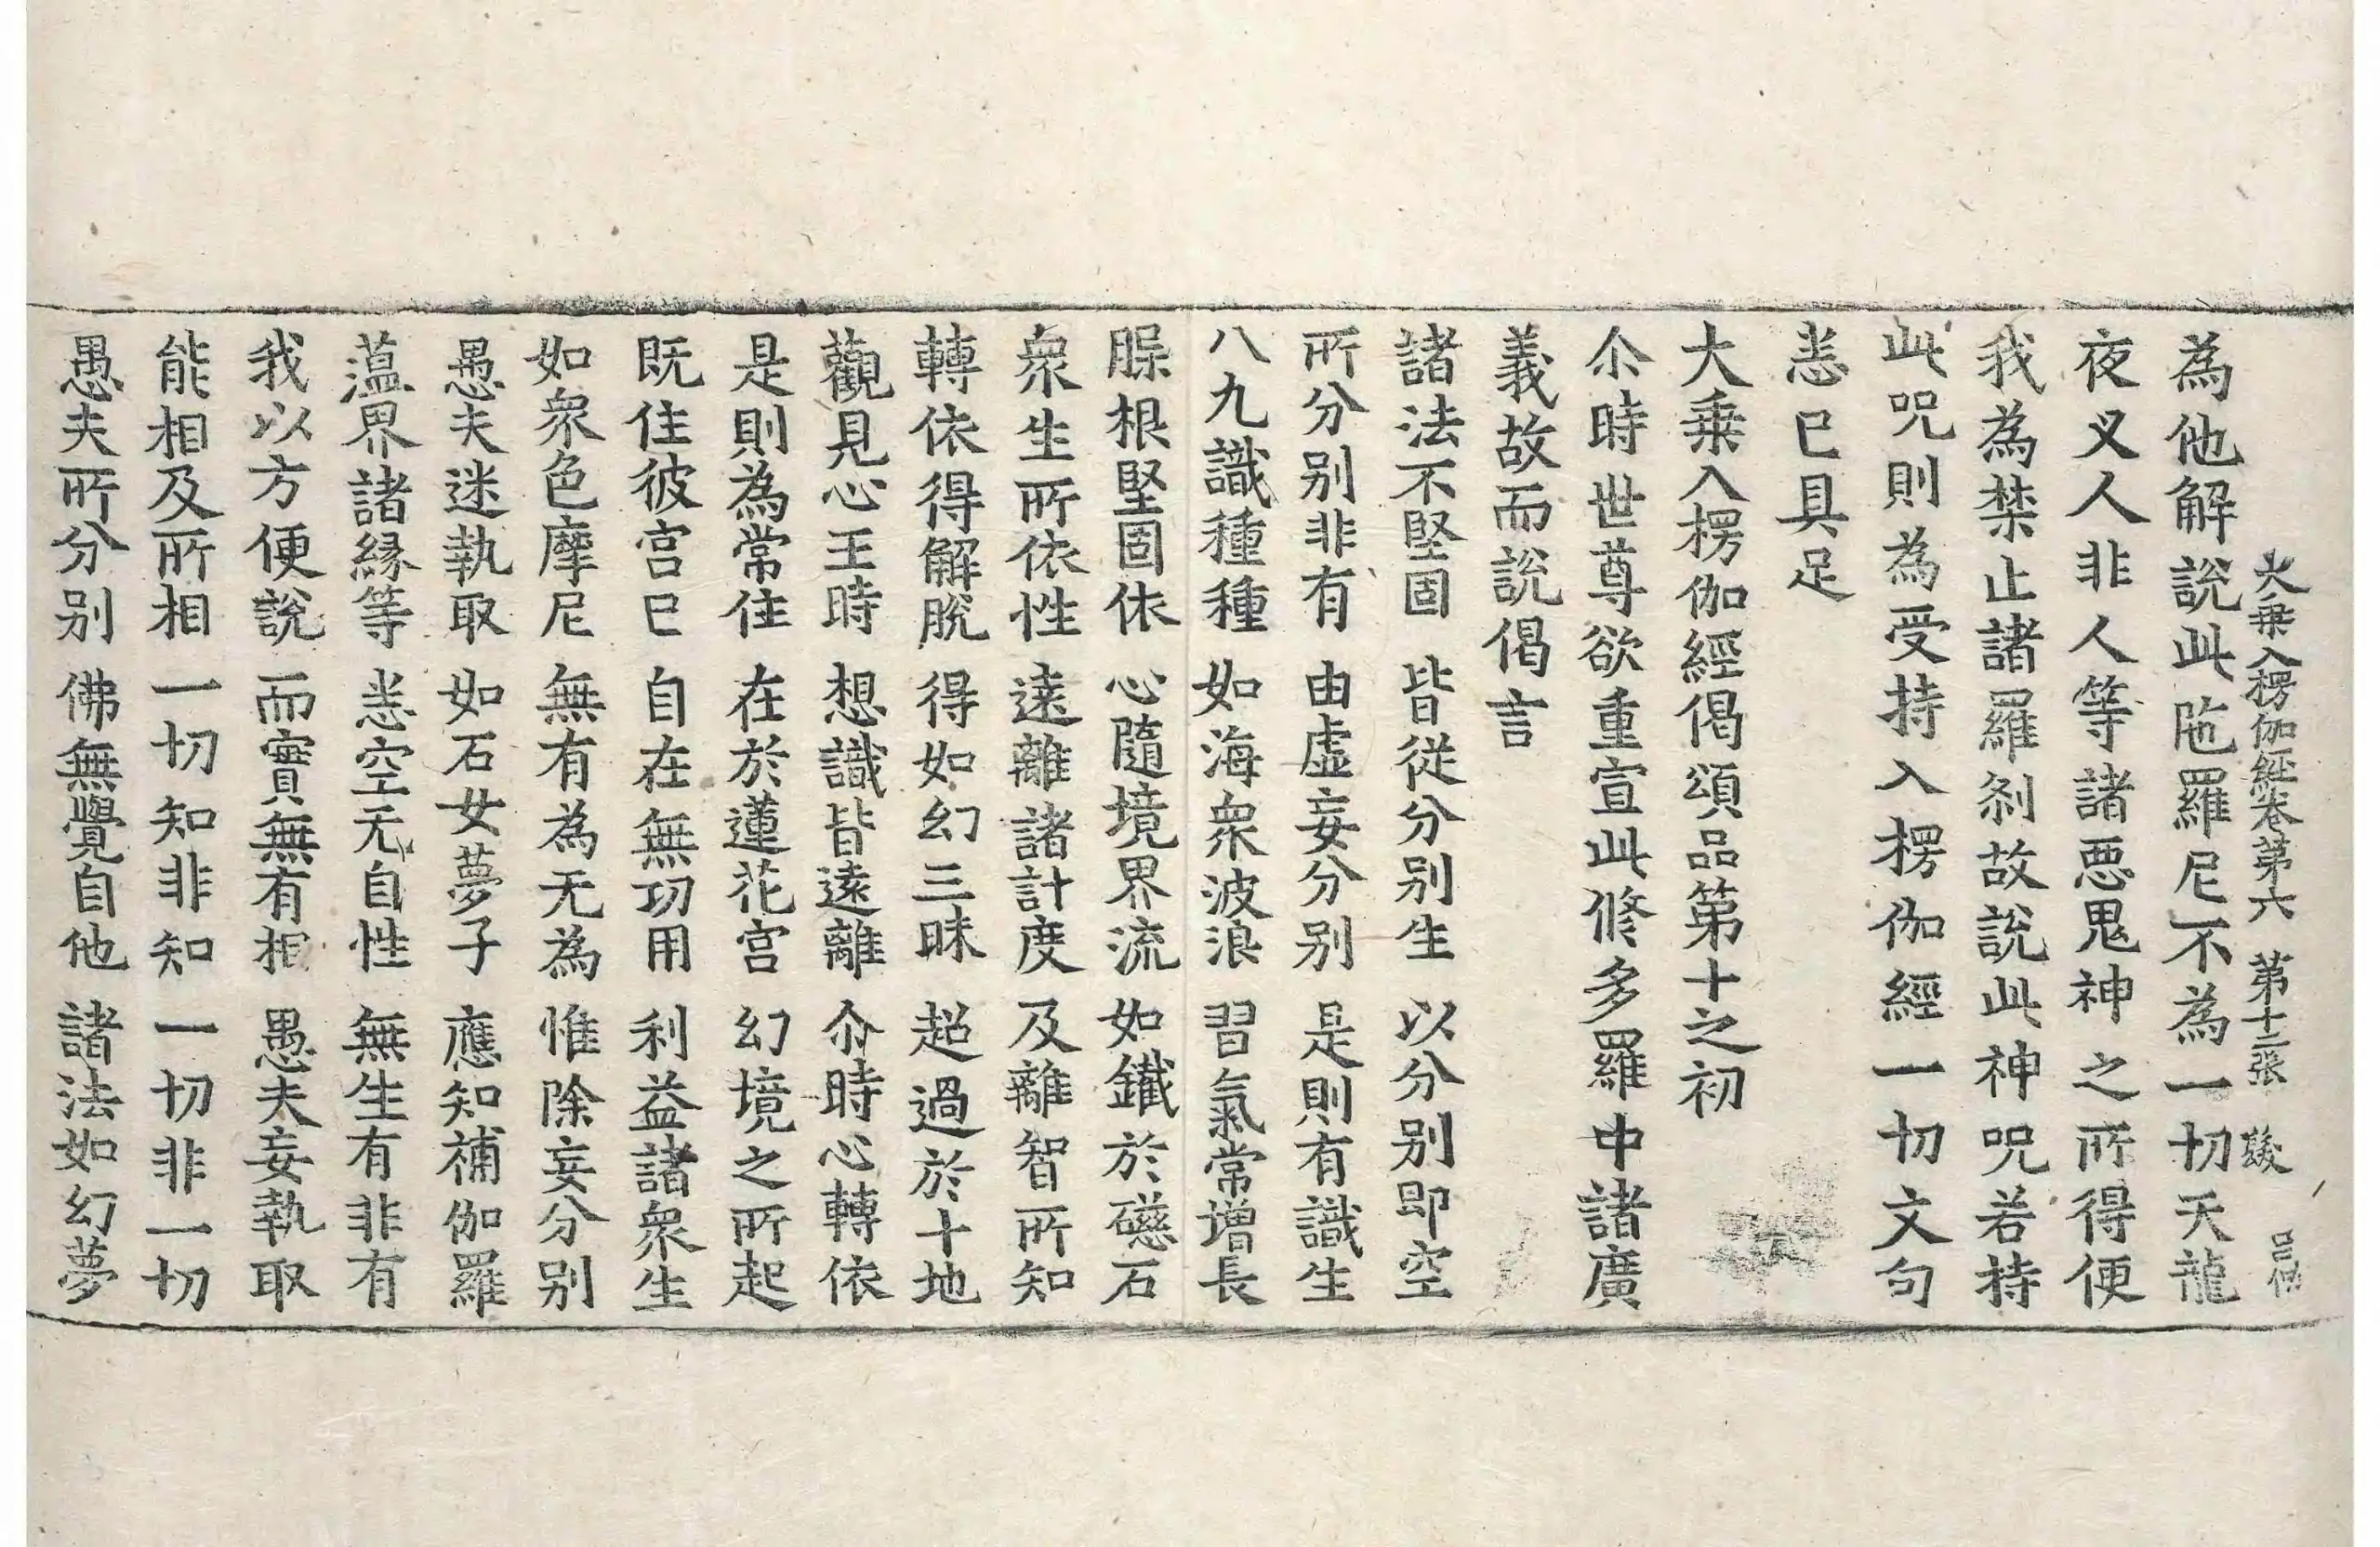 大乗入楞伽経卷第六 第十二張
為他解說此陁羅尼不為一切天龍
夜叉人非人等諸惡鬼神之所得便
我為禁止諸羅剎故說此神呪若持
此呪則為受持入楞伽經一切文句
悉已具足
大乗入楞伽經偈頌品第十之初
尒時世尊欲重宣此修多羅中諸廣
義故而說偈言
諸法不堅固 皆從分别生 以分别即空
所分别非有 由虛妄分别 是則有識生
八九識種種 如海衆波浪 習氣常增長
𣎅根堅固依 心隨境界流 如鐵於礠石
衆生所依性 遠離諸計度 及離智所知
轉依得解脫 得如幻三昧 超過於十地
觀見心王時 想識皆遠離 尒時心轉依
是則為常住 在於蓮花宮 幻境之所起
既住彼宮已 自在無功用 利益諸衆生
如衆色摩尼 無有為无為 惟除妄分别
愚夫迷執取 如石女夢子 應知補伽羅
蕰界諸緣等 悉空无自性 無生有非有
我以方便說 而實無有相 愚夫妄執取
能相及所相 一切知非知 一切非一切
愚夫所分别 佛無覺自他 諸法如幻夢